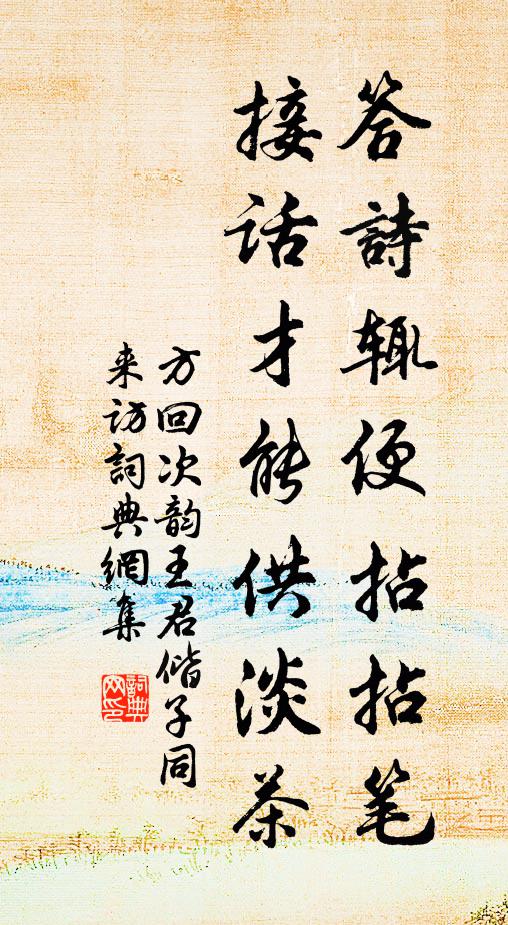 答詩辄便拈拈笔
接话才能供淡茶
方回次韵王君偕子同
来访詞典網集
詞典
网印